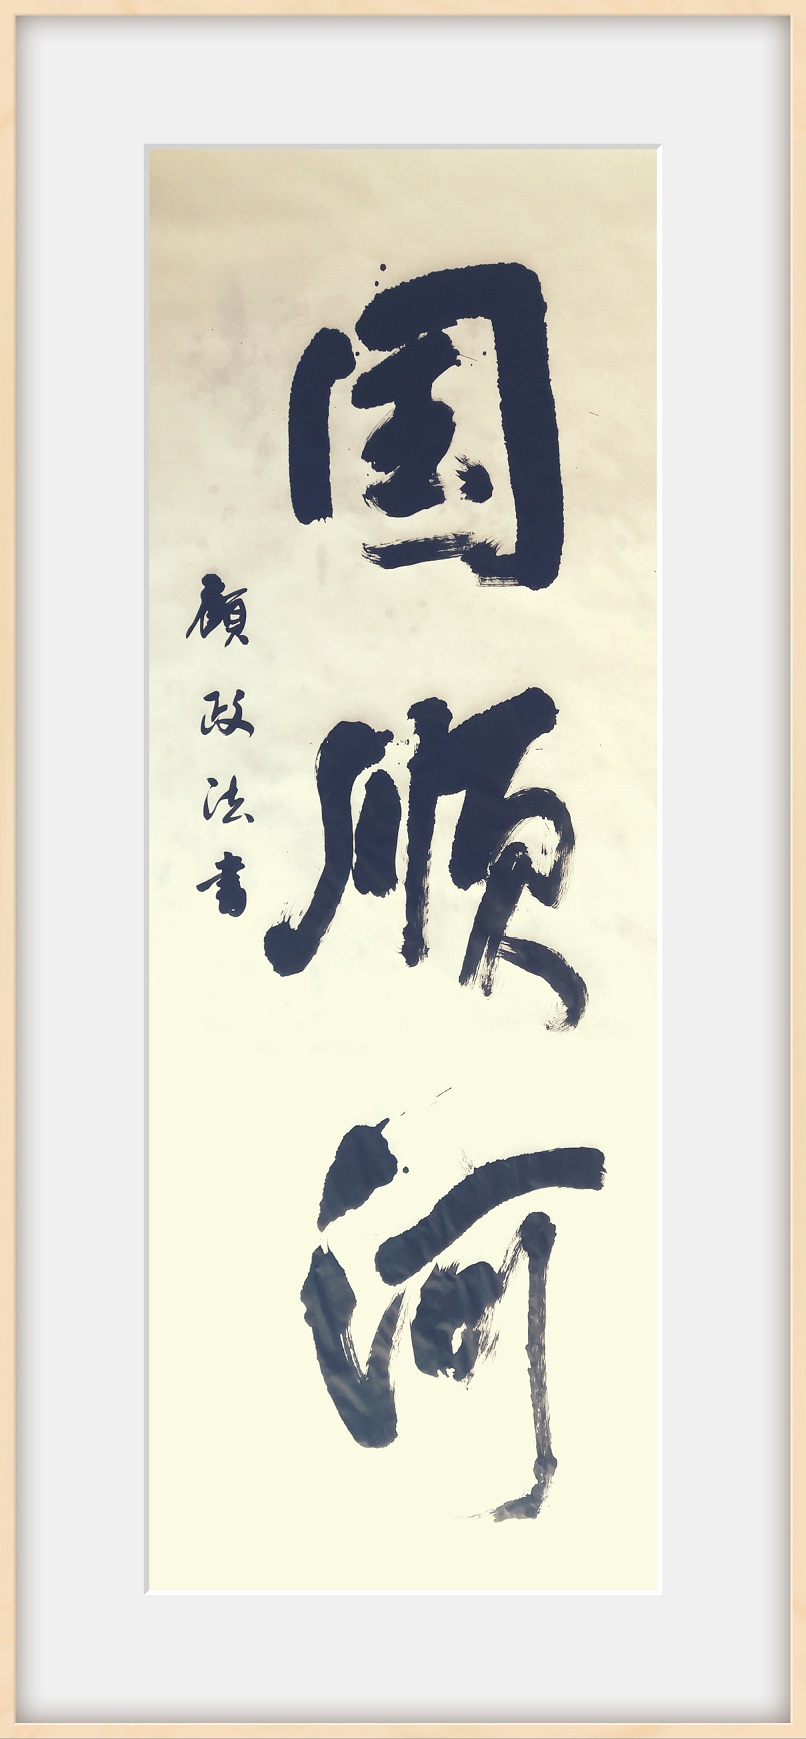 国顺河
顾政法书